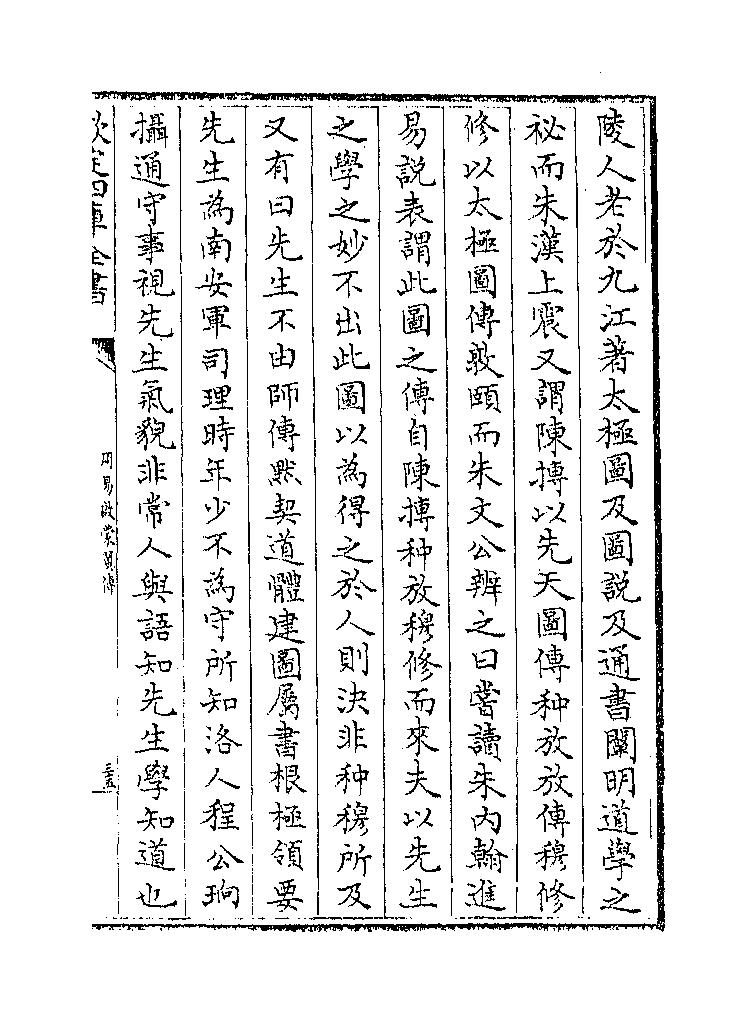 陵人老於九江著太極圖及圖說及通書闡明道學之
祕而朱漢上震又謂陳摶以先天圖傳种放放傳穆修
修以太極圖傳敦頤而朱文公辨之曰嘗讀朱内翰進
易說表謂此圖之傳自陳摶种放穆修而來夫以先生
之學之妙不出此圖以為得之於人則決非种穆所及
又有曰先生不由師傳默契道體建圖屬書根極領要
先生為南安軍司理時年少不為守所知洛人程公珦
攝通守事視先生氣貌非常人與語知先生學知道也
欽定四庫全書
周易啟蒙翼傳
三五